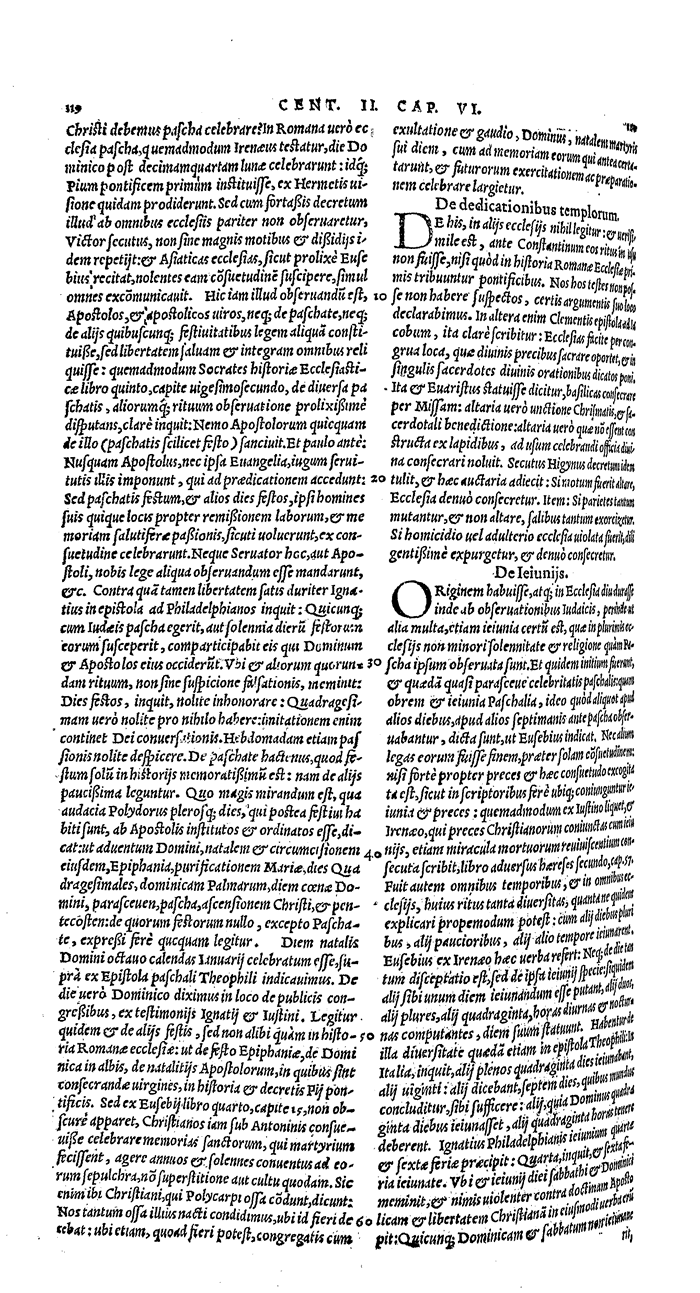 119
CENT. II. CAP. VI.
120
Christi debemus pascha celebrare? In Romana uerò ec-
clesia pascha, quemadmodum Irenæus testatur, die Do
minico post decimamquartam lunæ celebrarunt: idq;
Pium pontificem primùm instituisse, ex Hermetis ui-
sione quidam prodiderunt. Sed cum fortaßis decretum
illud ab omnibus ecclesijs pariter non obseruaretur,
Victor secutus, non sine magnis motibus & dißidijs i-
dem repetijt: & Asiaticas ecclesias, sicut prolixè Euse
bius recitat, nolentes eam cōsuetudinē suscipere, simul
omnes excōmunicauit. Hic iam illud obseruandū est,
Apostolos, & apostolicos uiros, neq; de paschate, neq;
de alijs quibuscunq; festiuitatibus legem aliquā consti-
tuisse, sed libertatem saluam & integram omnibus reli
quisse: quemadmodum Socrates historiæ Ecclesiasti-
cæ libro quinto, capite uigesimosecundo, de diuersa pa
schatis, aliorumq; rituum obseruatione prolixißimè
disputans, clarè inquit: Nemo Apostolorum quicquam
de illo (paschatis scilicet festo) sanciuit. Et paulo antè:
Nusquam Apostolus, nec ipsa Euangelia, iugum serui-
tutis illis imponunt, qui ad prædicationem accedunt:
Sed paschatis festum, & alios dies festos, ipsi homines
suis quique locis propter remißionem laborum, & me
moriam salutiferæ paßionis, sicuti uolucrunt, ex con-
suetudine celebrarunt. Neque Seruator hoc, aut Apo-
stoli, nobis lege aliqua obseruandum esse mandarunt,
&c. Contra quā tamen libertatem satis duriter Igna-
tius in epistola ad Philadelphianos inquit: Quicunq;
cum Iudæis pascha egerit, aut solennia dierū festorum
eorum susceperit, comparticipabit eis qui Dominum
& Apostolos eius occiderūt. Vbi & aliorum quorun-
dam rituum, non sine suspicione falsationis, meminit:
Dies festos, inquit, nolite inhonorare: Quadragesi-
mam uerò nolite pro nihilo habere: imitationem enim
continet Dei conuersationis. Hebdomadam etiam pas
sionis nolite despicere. De paschate hactenus, quod fe-
stum solū in historijs memoratißimū est: nam de alijs
paucißima leguntur. Quo magis mirandum est, qua
audacia Polydorus plerosq; dies, qui postea festiui ha
biti sunt, ab Apostolis institutos et ordinatos esse, di-
cat: ut aduentum Domini, natalem et circumcisionem
eiusdem, Epiphania, purificationem Mariæ, dies Qua
dragesimales, dominicam Palmarum, diem cœnæ Do-
mini, parasceuen, pascha, ascensionem Christi, & pen-
tecosten: de quorum festorum nullo, excepto Pascha-
te, expreßi ferè quicquam legitur. Diem natalis
Domini octauo calendas Ianuarij celebratum esse, su-
prà ex Epistola paschali Theophili indicauimus. De
die uerò Dominico diximus in loco de publicis con-
greßibus, ex testimonijs Ignatij & Iustini. Legitur
quidem & de alijs festis, sed non alibi quàm in histo-
ria Romanæ ecclesiæ: ut de festo Epiphaniæ, de Domi
nica in albis, de natalitijs Apostolorum, in quibus sint
consecrandæ uirgines, in historia & decretis Pij pon-
tificis. Sed ex Eusebij libro quarto, capite 15, non ob-
scurè apparet, Christianos iam sub Antoninis consue-
uisse celebrare memorias sanctorum, qui martyrium
fecissent, agere annuos & solennes conuentus ad eo-
rum sepulchra, nō superstitione aut cultu quodam. Sic
enim ibi Christiani, qui Polycarpi ossa cōdunt, dicunt:
Nos tantum ossa illius nacti condidimus, ubi id fieri de
cebat: ubi etiam, quoad fieri potest, congregatis cum
10
20
30
40
50
60
exultatione & gaudio, Dominus, natalem martyris
sui diem, cum ad memoriam eorum qui antea certa-
tarunt, & futurorum exercitationem ac præparatio-
nem celebrare largietur.
De dedicationibus templorum.
DE his, in alijs ecclesijs nihil legitur: & uerisi-
mile est, ante Constantinum eos ritus in usu
non fuisse, nisi quòd in historia Romanæ Ecclesiæ pri-
mis tribuuntur pontificibus. Nos hos testes non pos-
se non habere suspectos, certis argumentis suo loco
declarabimus. In altera enim Clementis epistola ad Ia
cobum, ita clarè scribitur: Ecclesias facite per con-
grua loca, quæ diuinis precibus sacrare oportet, & in
singulis sacerdotes diuinis orationibus dicatos poni.
Ita & Euaristus statuisse dicitur, basilicas consecrare
per Missam: altaria uerò unctione Chrismatis, & sa-
cerdotali benedictione: altaria uerò quæ nō essent con
structa ex lapidibus, ad usum celebrandi officia diui-
na consecrari noluit. Secutus Higynus decretum idem
tulit, & hæc auctaria adiecit: Si motum fuerit altare,
Ecclesia denuò consecretur. Item: Si parietes tantum
mutantur, & non altare, salibus tantum exorcizetur.
Si homicidio uel adulterio ecclesia uiolata fuerit, dili
gentißimè expurgetur, & denuò consecretur.
De Ieiunijs.
ORiginem habuisse, atq; in Ecclesia diu durasse
inde ab obseruationibus Iudaicis, perinde ut
alia multa, etiam ieiunia certū est, quæ in plurimis ec-
clesijs non minori solennitate & religione quàm Pa-
scha ipsum obseruata sunt. Et quidem initium fuerunt,
& quædā quasi parasceue celebritatis paschalis: quam
obrem & ieiunia Paschalia, ideo quòd aliquot apud
alios diebus, apud alios septimanis ante pascha obser-
uabantur, dicta sunt, ut Eusebius indicat. Nec alium
legas eorum fuisse finem, præter solam cōsuetudinem:
nisi fortè propter preces & hæc consuetudo excogita
ta est, sicut in scriptoribus ferè ubiq; coniunguntur ie-
iunia & preces: quemadmodum ex Iustino liquet, &
Irenæo, qui preces Christianorum coniunctas cum ieiu
nijs, etiam miracula mortuorum reuiuiscentium con-
secuta scribit, libro aduersus hæreses secundo, cap. 57.
Fuit autem omnibus temporibus, & in omnibus ec-
clesijs, huius ritus tanta diuersitas, quanta ne quidem
explicari propemodum potest: cùm alij diebus pluri
bus, alij paucioribus, alij alio tempore ieiunarent.
Eusebius ex Irenæo hæc uerba refert: Neq; de die tan
tum disceptatio est, sed de ipsa ieiunij specie, siquidem
alij sibi unum diem ieiunandum esse putant, alij duos,
alij plures, alij quadraginta, horas diurnas & noctur
nas computantes, diem suum statuunt. Habentur de
illa diuersitate quædā etiam in epistola Theophili: In
Italia, inquit, alij plenos quadraginta dies ieiunabant,
alij uiginti: alij dicebant, septem dies, quibus mundus
concluditur, sibi sufficere: alij, quia Dominus quadra
ginta diebus ieiunasset, alij quadraginta horas tenere
deberent. Ignatius Philadelphianis ieiunium quartæ
& sextæ feriæ præcipit: Quarta, inquit, & sexta fe-
ria ieiunate. Vbi & ieiunij diei sabbathi & Dominici
meminit, & nimis uiolenter contra doctrinam Aposto
licam & libertatem Christianā in eiusmodi uerba erū
pit: Quicunq; Dominicam & sabbatum non ieiunaue
rit,